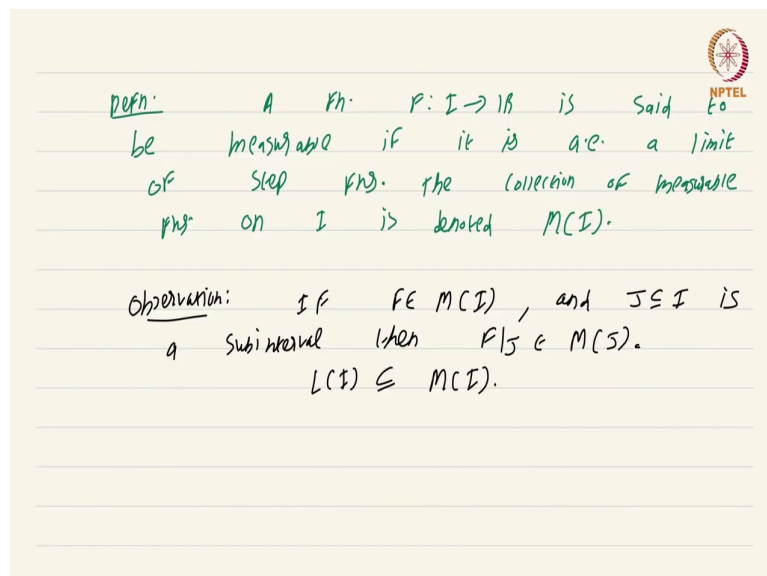 NPTEL
Defn: A Fn. F: I → IR is said to
be measurable if it is a.e. a limit
of step Fns. The collection of measurable
Fns on I is denoted M(I).
Observation: IF F ∈ M(I), and J ⊆ I is
a subinterval then F|J ∈ M(J).
L(I) ⊆ M(I).